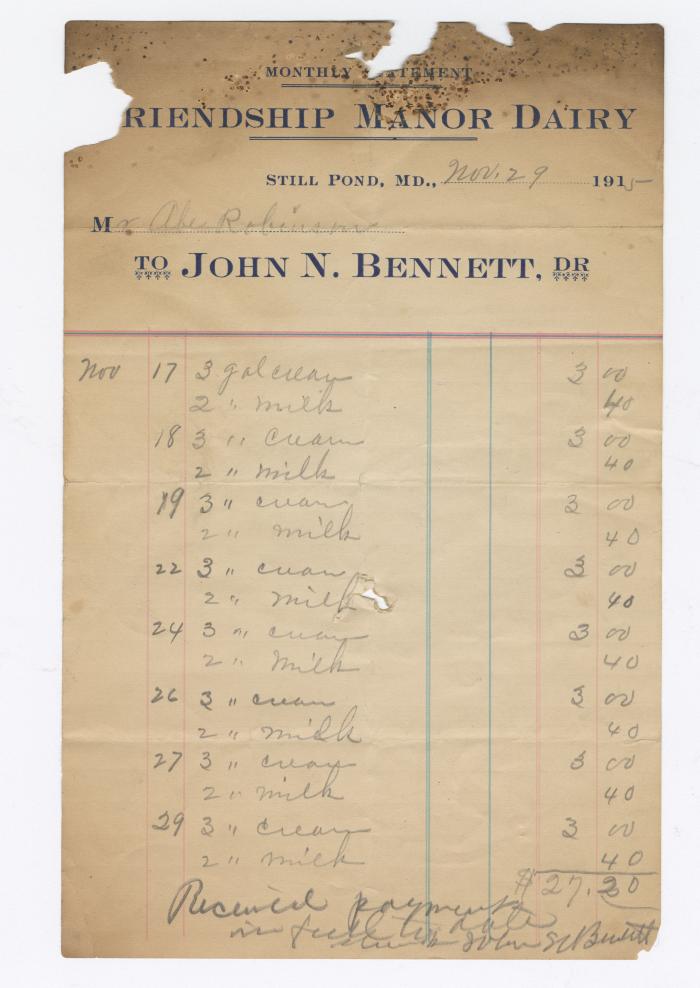 MONTHLY STATEMENT
RIENDSHIP MANOR DAIRY
STILL POND, MD., Nov. 29 1915
Mr Abe Robinson
TO JOHN N. BENNETT, DR
Nov 17 3 gal cream 3 00
2 " milk 40
18 3 " cream 3 00
2 " milk 40
19 3 " cream 3 00
2 " milk 40
22 3 " cream 3 00
2 " milk 40
24 3 " cream 3 00
2 " milk 40
26 3 " cream 3 00
2 " milk 40
27 3 " cream 3 00
2 " milk 40
29 3 " cream 3 00
2 " milk 40
$27.20
Received payment
in full to date
John N Bennett